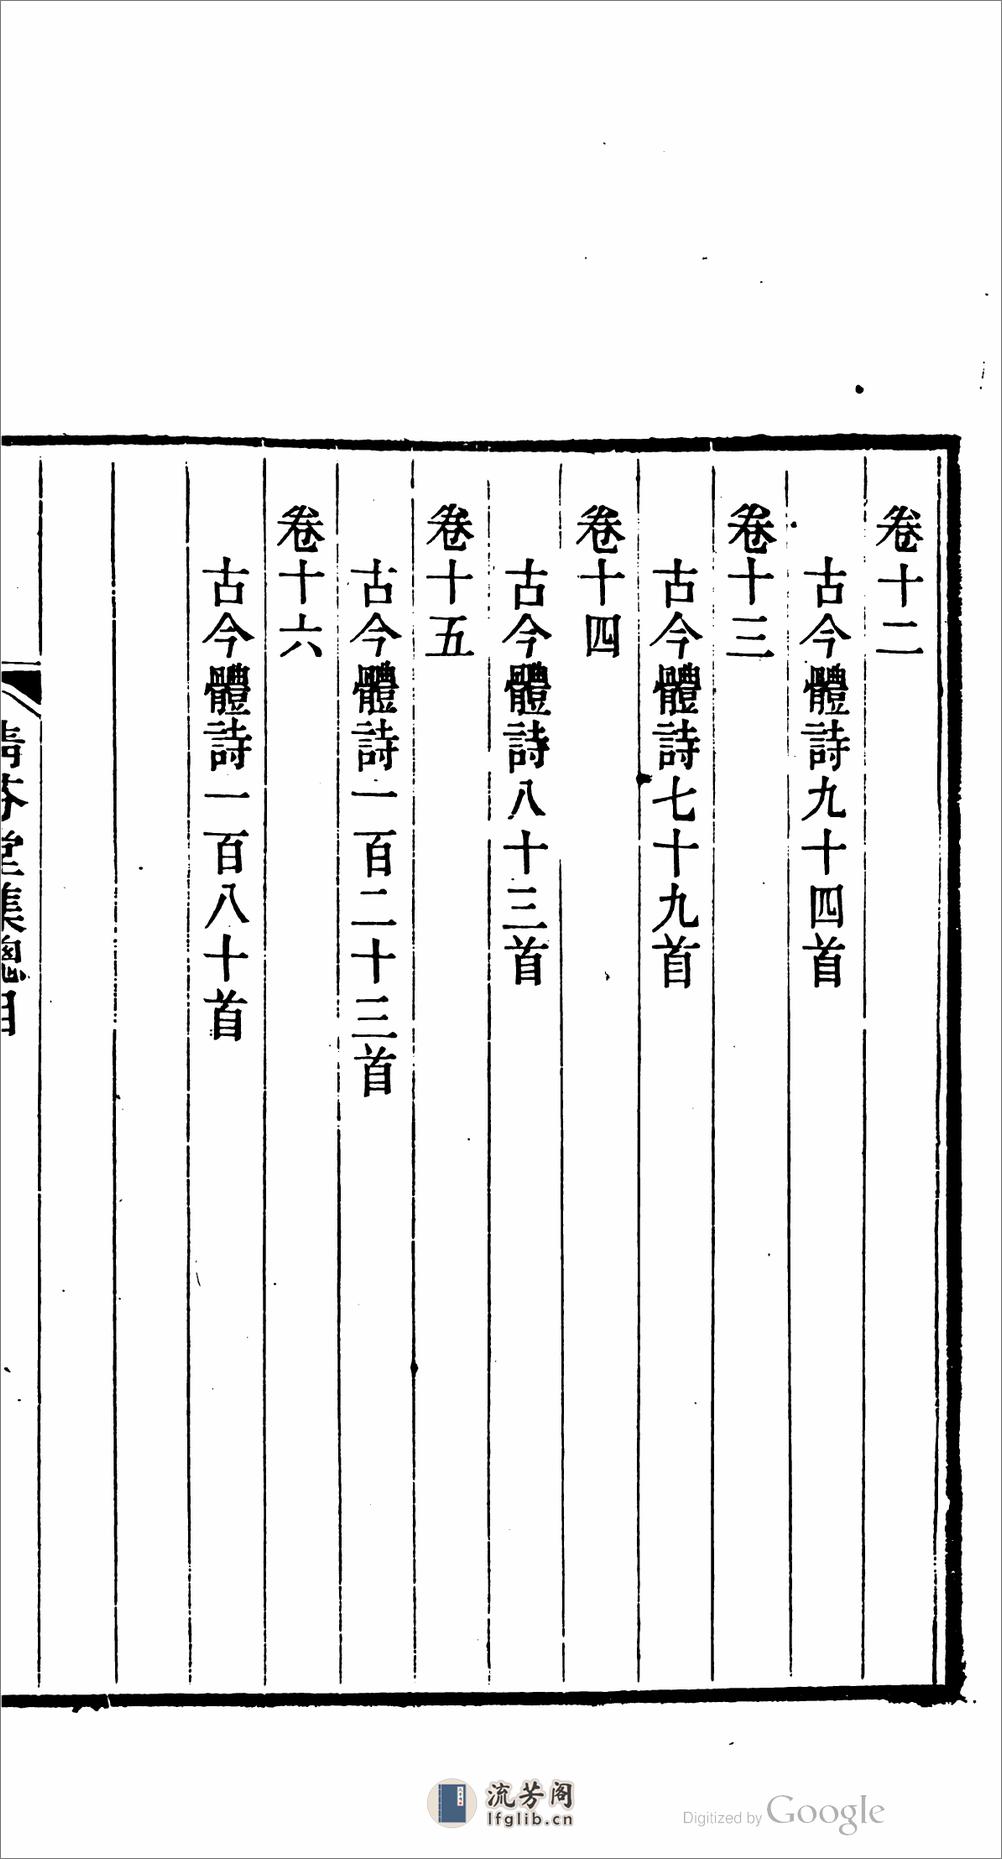 卷十二
古今體詩九十四首
卷十三
古今體詩七十九首
卷十四
古今體詩八十三首
卷十五
古今體詩一百二十三首
卷十六
古今體詩一百八十首
清芬堂集總目
流芳阁
lfglib.cn
Digitized by Google